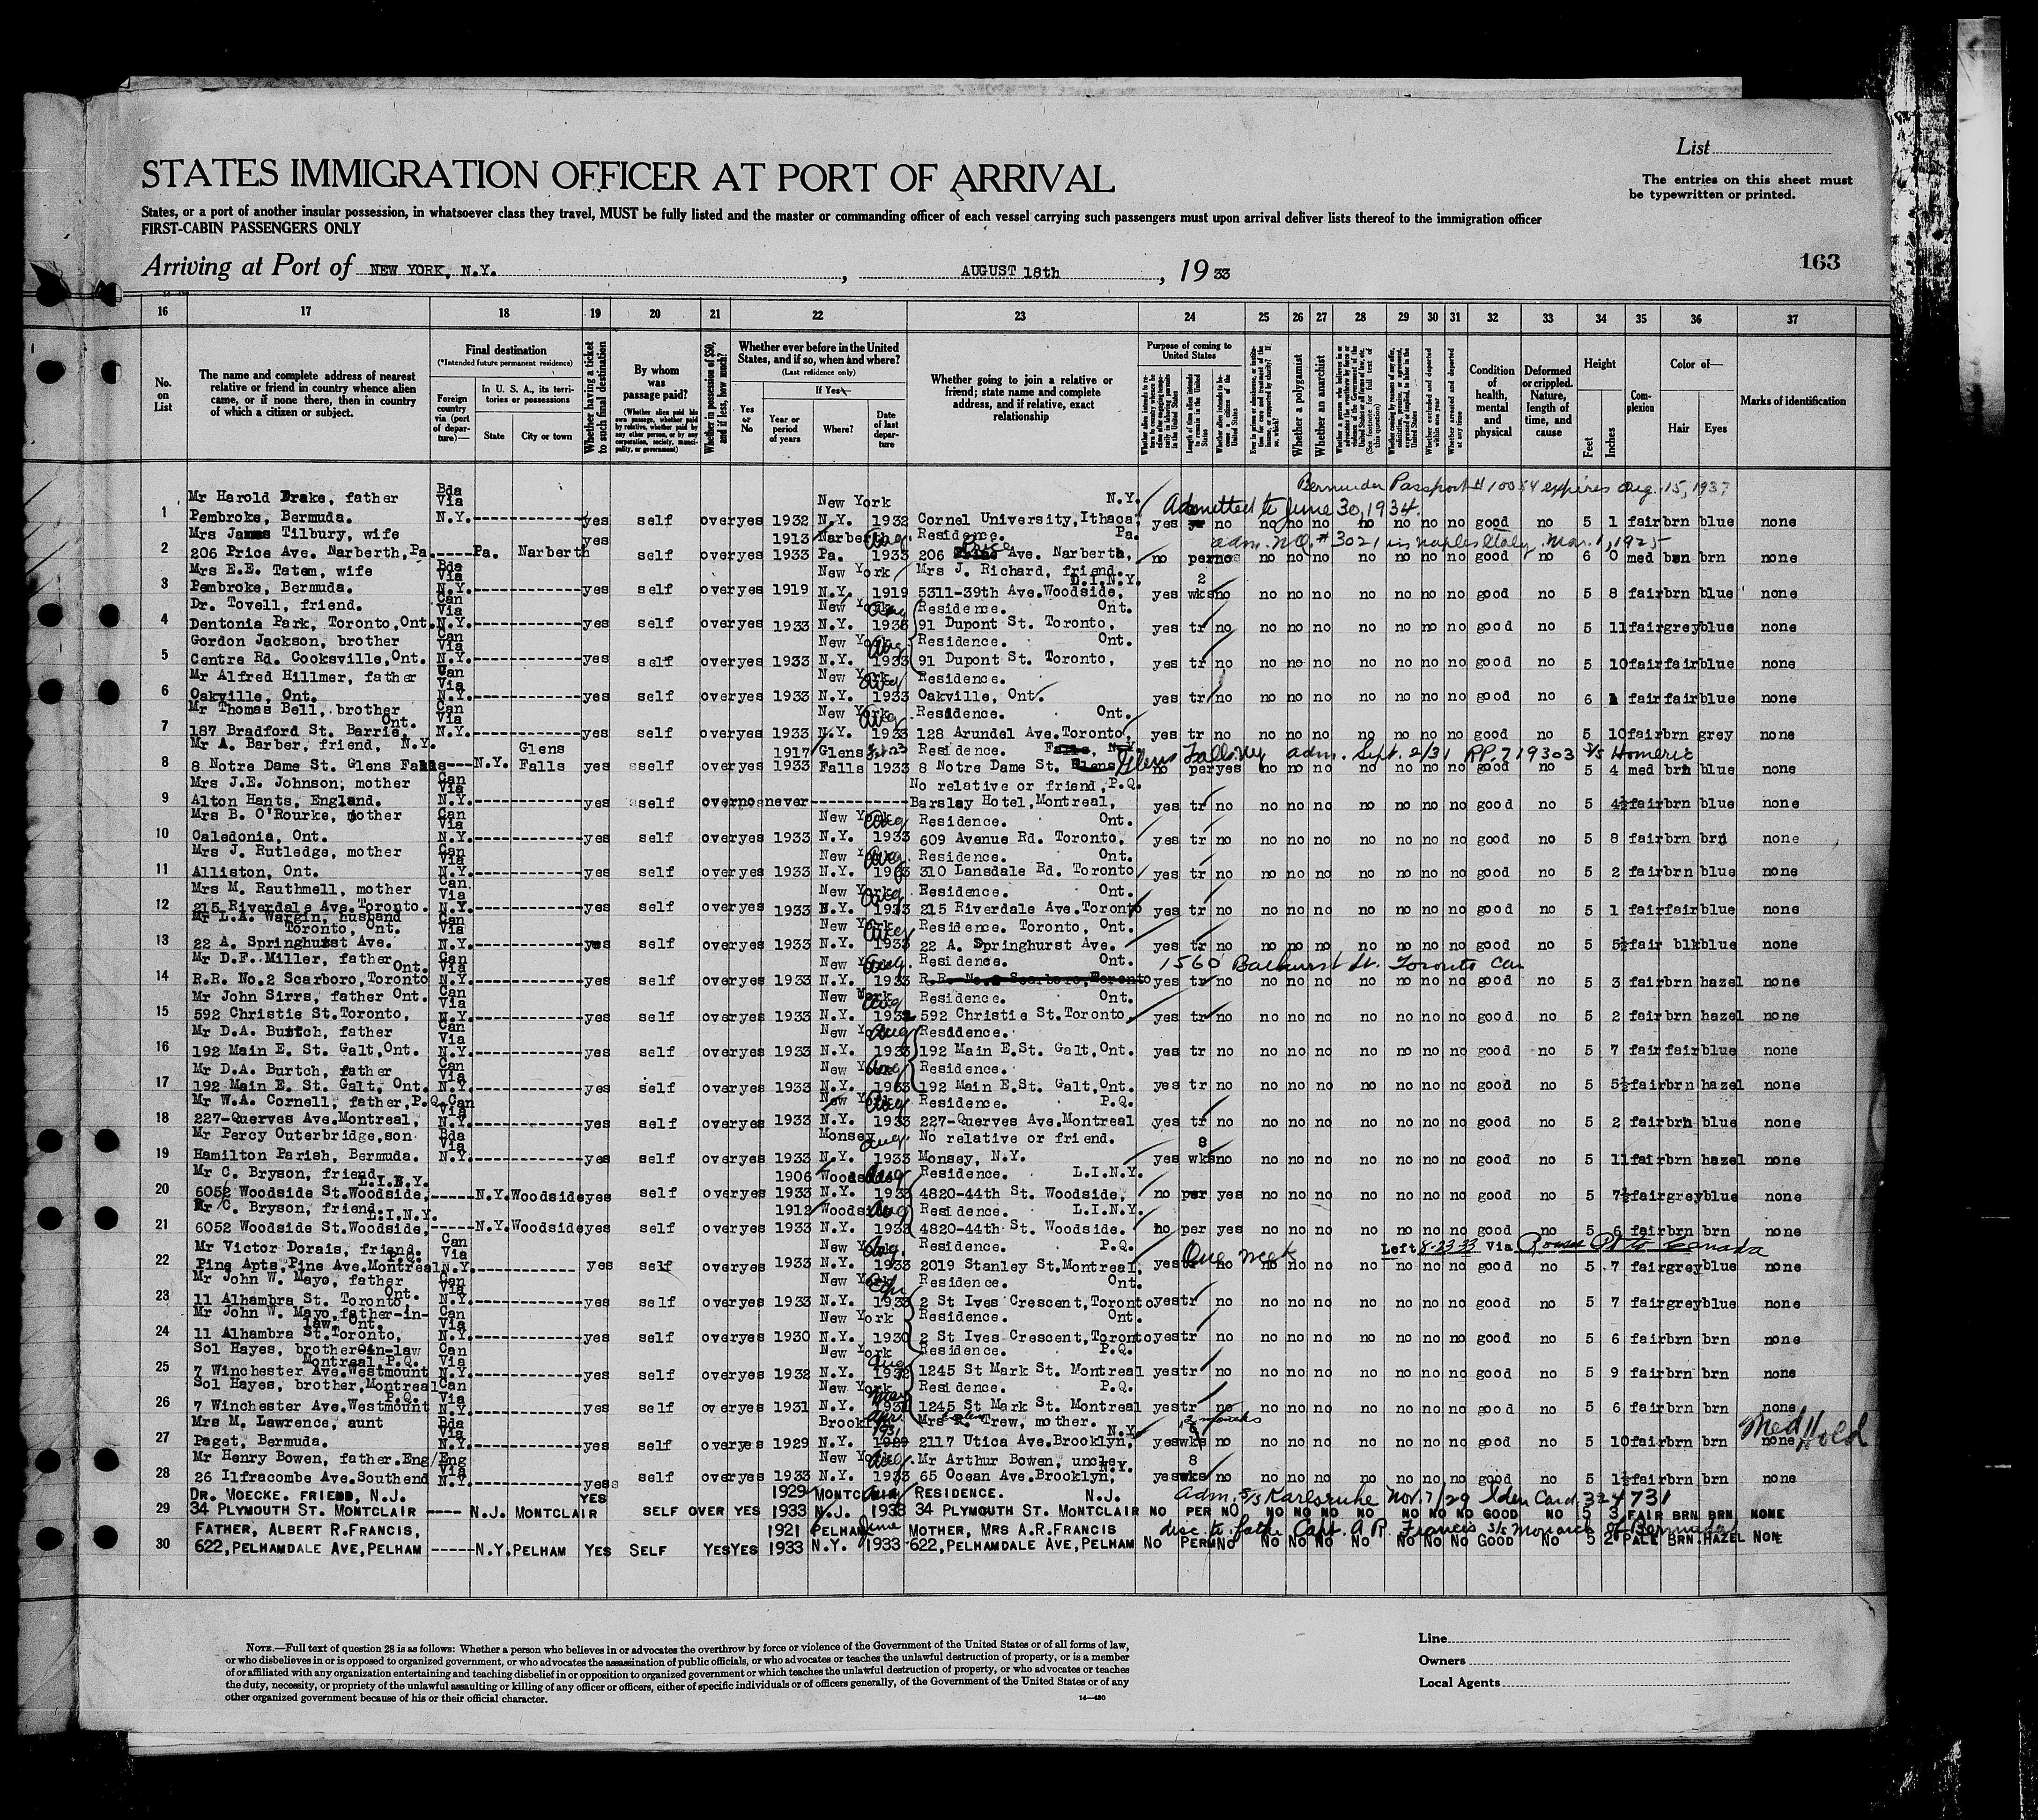 List
STATES IMMIGRATION OFFICER AT PORT OF ARRIVAL
The entries on this sheet must
be typewritten or printed.
States, or a port of another insular possession, in whatsoever class they travel, MUST be fully listed and the master or commanding officer of each vessel carrying such passengers must upon arrival deliver lists thereof to the immigration officer
FIRST-CABIN PASSENGERS ONLY
Arriving at Port of NEW YORK, N.Y. , AUGUST 18th , 1933
163
16 17 18 19 20 21 22 23 24 25 26 27 28 29 30 31 32 33 34 35 36 37
No. on List
The name and complete address of nearest relative or friend in country whence alien came, or if none there, then in country of which a citizen or subject.
Final destination
(*Intended future permanent residence)
Foreign country via (port of departure)—
In U. S. A., its territories or possessions
State City or town
Whether having a ticket to such final destination
By whom was passage paid?
(Whether alien paid his own passage, whether paid by relative, whether paid by any other person, or by any corporation, society, municipality, or government)
Whether in possession of $50, and if less, how much?
Whether ever before in the United States, and if so, when and where?
(Last residence only)
Yes or No
If Yes—
Year or period of years
Where?
Date of last departure
Whether going to join a relative or friend; state name and complete address, and if relative, exact relationship
Purpose of coming to United States
Length of time alien intends to remain in the United States
Whether a polygamist
Whether an anarchist
Condition of health, mental and physical
Deformed or crippled. Nature, length of time, and cause
Height
Feet Inches
Complexion
Color of—
Hair Eyes
Marks of identification
Passport # 10054 expires Aug. 15, 1937
Mr Harold Drake, father Bda Via New York N.Y. Admitted to June 30, 1934.
1 Pembroke, Bermuda. N.Y. yes self over yes 1932 N.Y. 1932 Cornel University, Ithaca, yes no no no no no no no no good no 5 1 fair brn blue none
Mrs James Tilbury, wife yes 1913 Narberth Aug Residence. Pa. adm. N.Q. # 3021 Naples Italy Mar. 1, 1925
2 206 Price Ave. Narberth, Pa. Pa. Narberth self over yes 1933 Pa. 1933 206 Price Ave. Narberth, no per no no no no no no no no good no 6 0 med brn brn none
Mrs E.E. Tatem, wife Bda Via New York Mrs J. Richard, friend. L.I.N.Y. 2
3 Pembroke, Bermuda. N.Y. yes self over yes 1919 N.Y. 1919 5311-39th Ave. Woodside, yes wks no no no no no no no no good no 5 8 fair brn blue none
Dr. Tovell, friend. Can Via New York Aug Residence. Ont.
4 Dentonia Park, Toronto, Ont. N.Y. yes self over yes 1933 N.Y. 1933 91 Dupont St. Toronto, yes tr no no no no no no no no good no 5 11 fair grey blue none
Gordon Jackson, brother Can Via New York Aug Residence. Ont.
5 Centre Rd. Cooksville, Ont. N.Y. yes self over yes 1933 N.Y. 1933 91 Dupont St. Toronto, yes tr no no no no no no no no good no 5 10 fair fair blue none
Mr Alfred Hillmer, father Can Via New York Aug Residence.
6 Oakville, Ont. N.Y. yes self over yes 1933 N.Y. 1933 Oakville, Ont. yes tr no no no no no no no no good no 6 1 fair fair blue none
Mr Thomas Bell, brother Ont. Can Via New York Aug Residence. Ont.
7 187 Bradford St. Barrie, N.Y. yes self over yes 1933 N.Y. 1933 128 Arundel Ave. Toronto, yes tr no no no no no no no no good no 5 10 fair brn grey none
Mr A. Barber, friend, N.Y. Glens 1917 Glens Residence. Falls, N.Y. Glens Falls NY adm. Sept. 2/31 RP. 719303 S/S Homeric
8 8 Notre Dame St. Glens Falls N.Y. Falls yes self over yes 1933 Falls 1933 8 Notre Dame St. Glens no per yes no no no no no no no good no 5 4 med brn blue none
Mrs J.E. Johnson, mother Can Via No relative or friend, P.Q.
9 Alton Hants, England. N.Y. yes self over no never Barslay Hotel, Montreal, yes tr no no no no no no no no good no 5 4½ fair brn blue none
Mrs B. O'Rourke, mother Can Via New York Aug Residence. Ont.
10 Caledonia, Ont. N.Y. yes self over yes 1933 N.Y. 1933 609 Avenue Rd. Toronto, yes tr no no no no no no no no good no 5 8 fair brn brn none
Mrs J. Rutledge, mother Can Via New York Aug Residence. Ont.
11 Alliston, Ont. N.Y. yes self over yes 1933 N.Y. 1933 310 Lansdale Rd. Toronto yes tr no no no no no no no no good no 5 2 fair brn blue none
Mrs M. Rauthmell, mother Can Via New York Aug Residence. Ont.
12 215 Riverdale Ave. Toronto. N.Y. yes self over yes 1933 N.Y. 1933 215 Riverdale Ave. Toronto yes tr no no no no no no no no good no 5 1 fair fair blue none
Mr L.A. Wargin, husband Toronto, Ont. Can Via New York Aug Residence. Toronto, Ont.
13 22 A. Springhurst Ave. N.Y. yes self over yes 1933 N.Y. 1933 22 A. Springhurst Ave. yes tr no no no no no no no no good no 5 5½ fair blk blue none
Mr D.F. Miller, father Ont. Can Via New York Aug Residence. Ont. 1560 Bathurst St. Toronto Can
14 R.R. No.2 Scarboro, Toronto N.Y. yes self over yes 1933 N.Y. 1933 R.R. No.2 Scarboro, Toronto yes tr no no no no no no no no good no 5 3 fair brn hazel none
Mr John Sirrs, father Ont. Can Via New York Aug Residence. Ont.
15 592 Christie St. Toronto, N.Y. yes self over yes 1933 N.Y. 1933 592 Christie St. Toronto, yes tr no no no no no no no no good no 5 2 fair brn hazel none
Mr D.A. Burtch, father Can Via New York Aug Residence.
16 192 Main E. St. Galt, Ont. N.Y. yes self over yes 1933 N.Y. 1933 192 Main E. St. Galt, Ont. yes tr no no no no no no no no good no 5 7 fair fair blue none
Mr D.A. Burtch, father Can Via New York Aug Residence.
17 192 Main E. St. Galt, Ont. N.Y. yes self over yes 1933 N.Y. 1933 192 Main E. St. Galt, Ont. yes tr no no no no no no no no good no 5 5½ fair brn hazel none
Mr W.A. Cornell, father, P.Q. Can Via New York Aug Residence. P.Q.
18 227-Querves Ave. Montreal, N.Y. yes self over yes 1933 N.Y. 1933 227-Querves Ave. Montreal yes tr no no no no no no no no good no 5 2 fair brn blue none
Mr Percy Outerbridge, son Bda Via Monsey Aug. No relative or friend. 8
19 Hamilton Parish, Bermuda. N.Y. yes self over yes 1933 N.Y. 1933 Monsey, N.Y. yes wks no no no no no no no no good no 5 11 fair brn hazel none
Mr C. Bryson, friend L.I.N.Y. 1906 Woodside Aug Residence. L.I.N.Y.
20 6052 Woodside St. Woodside, N.Y. Woodside yes self over yes 1933 N.Y. 1933 4820-44th St. Woodside, no per yes no no no no no no no good no 5 7½ fair grey blue none
Mr C. Bryson, friend. L.I.N.Y. 1912 Woodside Aug Residence. L.I.N.Y.
21 6052 Woodside St. Woodside, N.Y. Woodside yes self over yes 1933 N.Y. 1933 4820-44th St. Woodside. no per yes no no no no no no no good no 5 6 fair brn brn none
Mr Victor Dorais, friend. P.Q. Can Via New York Aug. Residence. P.Q. One week Left 8-23-33 Via Rouses Pt to Canada
22 Pine Apts, Pine Ave. Montreal N.Y. yes self over yes 1933 N.Y. 1933 2019 Stanley St. Montreal, yes tr no no no no no no no no good no 5 7 fair grey blue none
Mr John W. Mayo, father Ont. Can Via New York Apr Residence. Ont.
23 11 Alhambra St. Toronto, N.Y. yes self over yes 1933 N.Y. 1933 2 St Ives Crescent, Toronto yes tr no no no no no no no no good no 5 7 fair grey blue none
Mr John W. Mayo, father-in-law, Ont. Can Via New York Residence. Ont.
24 11 Alhambra St. Toronto, N.Y. yes self over yes 1930 N.Y. 1930 2 St Ives Crescent, Toronto yes tr no no no no no no no no good no 5 6 fair brn brn none
Sol Hayes, brother-in-law Montreal, P.Q. Can Via New York Aug Residence. P.Q.
25 7 Winchester Ave. Westmount N.Y. yes self over yes 1932 N.Y. 1932 1245 St Mark St. Montreal yes tr no no no no no no no no good no 5 9 fair brn brn none
Sol Hayes, brother, Montreal P.Q. Can Via New York Residence. P.Q.
26 7 Winchester Ave. Westmount N.Y. yes self over yes 1931 N.Y. 1931 1245 St Mark St. Montreal yes tr no no no no no no no no good no 5 6 fair brn brn none
Mrs M. Lawrence, aunt Bda Via Brooklyn Apr. 1931 Mrs Trew, mother. N.Y. 2 months
27 Paget, Bermuda. N.Y. yes self over yes 1929 N.Y. 1929 2117 Utica Ave. Brooklyn, yes wks no no no no no no no no good no 5 10 fair brn brn none Med Hold
Mr Henry Bowen, father. Eng/Eng Via New York Aug. Mr Arthur Bowen, uncle, N.Y. 8
28 26 Ilfracombe Ave. Southend N.Y. yes self over yes 1933 N.Y. 1933 65 Ocean Ave. Brooklyn, yes wks no no no no no no no no good no 5 1½ fair brn brn none
DR. MOECKE. FRIEND, N.J. YES 1929 MONTCLAIR Aug RESIDENCE. N.J. adm. S/S Karlsruhe Nov. 7/29 Iden Card 324731
29 34 PLYMOUTH ST. MONTCLAIR N.J. MONTCLAIR SELF OVER YES 1933 N.J. 1933 34 PLYMOUTH ST. MONTCLAIR NO PER NO NO NO NO NO NO NO NO GOOD NO 5 3 FAIR BRN BRN NONE
FATHER, ALBERT R. FRANCIS, 1921 PELHAM June MOTHER, MRS A.R. FRANCIS disc. to father Capt. A. R. Francis S/S Monarch of Bermuda
30 622, PELHAMDALE AVE, PELHAM N.Y. PELHAM YES SELF YES YES 1933 N.Y. 1933 622, PELHAMDALE AVE, PELHAM NO PERM NO NO NO NO NO NO NO NO GOOD NO 5 2 PALE BRN. HAZEL NONE
NOTE.—Full text of question 28 is as follows: Whether a person who believes in or advocates the overthrow by force or violence of the Government of the United States or of all forms of law,
or who disbelieves in or is opposed to organized government, or who advocates the assassination of public officials, or who advocates or teaches the unlawful destruction of property, or is a member
of or affiliated with any organization entertaining and teaching disbelief in or opposition to organized government or which teaches the unlawful destruction of property, or who advocates or teaches
the duty, necessity, or propriety of the unlawful assaulting or killing of any officer or officers, either of specific individuals or of officers generally, of the Government of the United States or of any
other organized government because of his or their official character.
14—430
Line
Owners
Local Agents